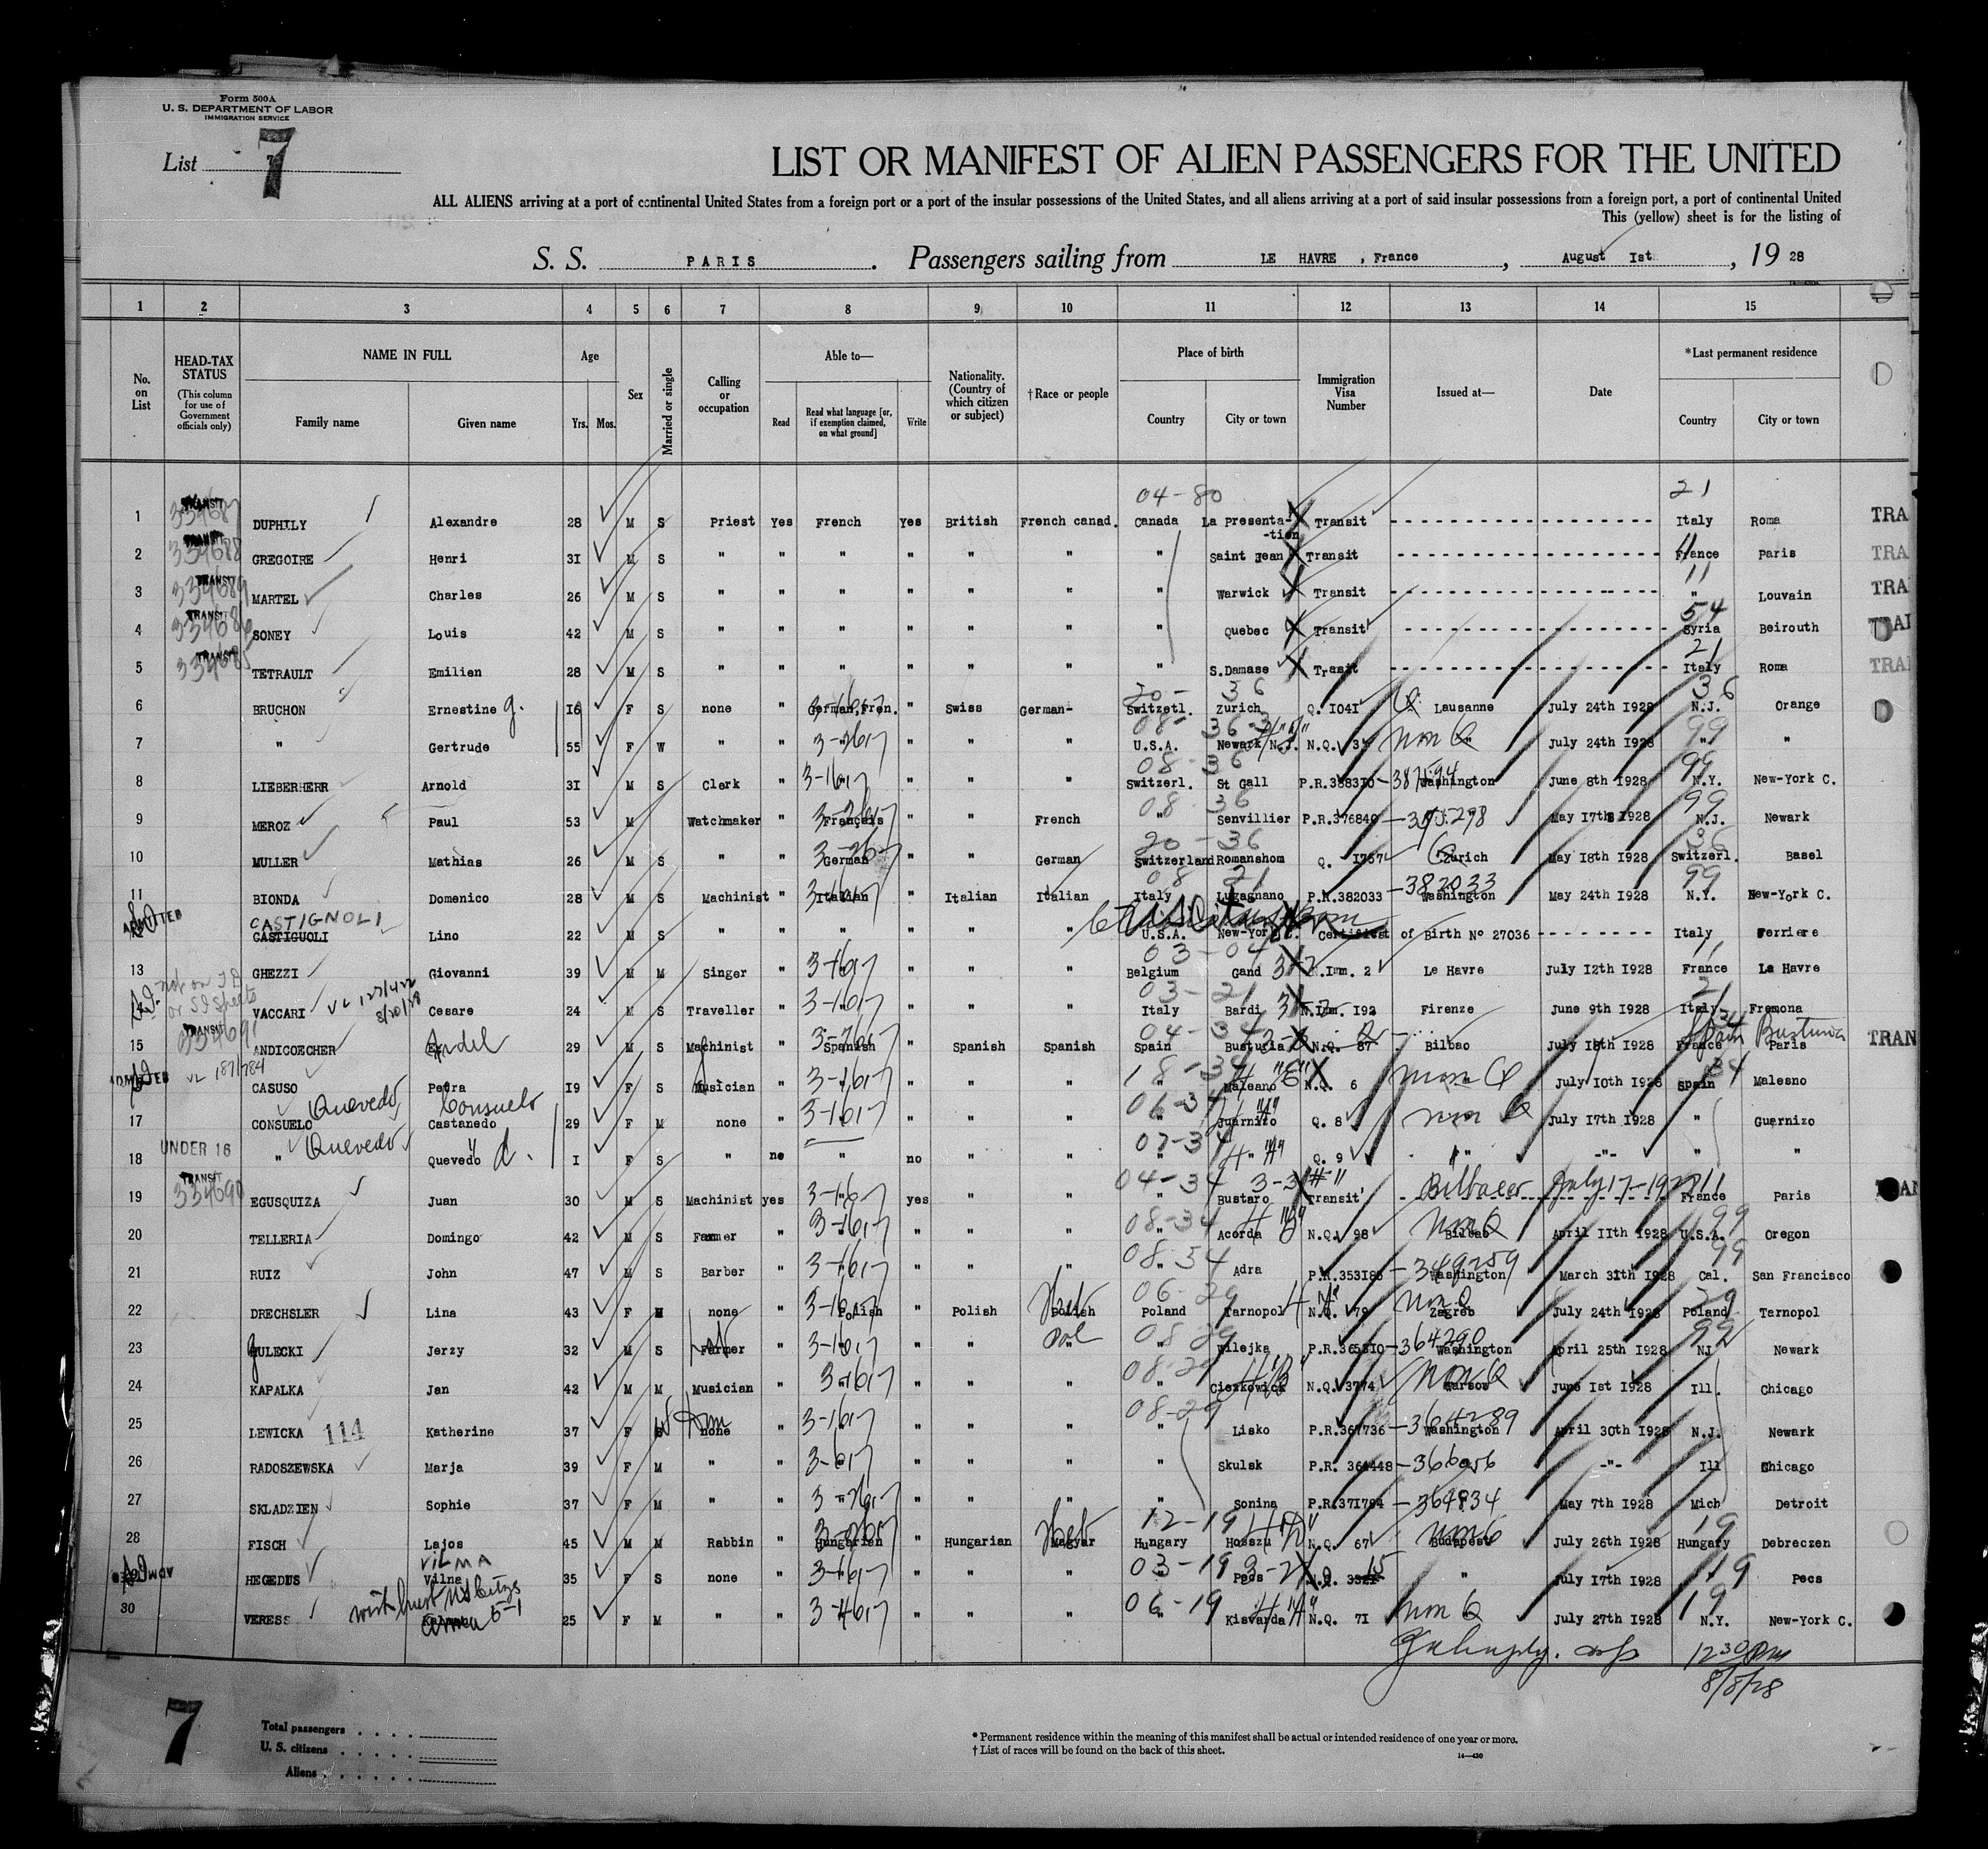 Form 500A
U. S. DEPARTMENT OF LABOR
IMMIGRATION SERVICE
List 7
7
LIST OR MANIFEST OF ALIEN PASSENGERS FOR THE UNITED
ALL ALIENS arriving at a port of continental United States from a foreign port or a port of the insular possessions of the United States, and all aliens arriving at a port of said insular possessions from a foreign port, a port of continental United
This (yellow) sheet is for the listing of
S. S. PARIS. Passengers sailing from LE HAVRE , France, August Ist, 19 28
1 2 3 4 5 6 7 8 9 10 11 12 13 14 15
No. on List
HEAD-TAX STATUS
(This column for use of Government officials only)
NAME IN FULL
Family name Given name
Age
Yrs. Mos.
Sex
Married or single
Calling or occupation
Able to—
Read
Read what language [or, if exemption claimed, on what ground]
Write
Nationality. (Country of which citizen or subject)
†Race or people
Place of birth
Country City or town
Immigration Visa Number
Issued at—
Date
*Last permanent residence
Country City or town
04-80 21
1 TRANSIT 334687 DUPHILY Alexandre 28 M S Priest Yes French Yes British French canad. Canada La Presenta-tion Transit Italy Roma TRA
2 TRANSIT 334688 GREGOIRE Henri 3I M S " " " " " " " Saint Jean Transit France Paris TRA
11
3 TRANSIT 334689 MARTEL Charles 26 M S " " " " " " " Warwick Transit " Louvain TRA
54
4 TRANSIT 334686 SONEY Louis 42 M S " " " " " " " Quebec Transit Syria Beirouth TRA
21
5 TRANSIT 334685 TETRAULT Emilien 28 M S " " " " " " " S.Damase Trasit Italy Roma TRA
20- 36 36
6 BRUCHON Ernestine G. I6 F S none " German,Fren. " Swiss German- Switzetl. Zurich Q. I04I Q Lausanne July 24th I928 N.J. Orange
08- 36 99
7 " Gertrude 55 F W " " " " " " U.S.A. Newark N.J. N.Q. 3 Non Q July 24th I928 " "
08-36 99
8 LIEBERHERR Arnold 3I M S Clerk " 3-1617 " " " Switzerl. St Gall P.R.3883I0 Washington June 8th I928 N.Y. New-York C.
08 36 99
9 MEROZ Paul 53 M Watchmaker " Français " " French " Senvillier P.R.376840 May I7th I928 N.J. Newark
20-36 36
10 MULLER Mathias 26 M S " " German " " German Switzerland Romanshom Q. I757 Q Zurich May I8th I928 Switzerl. Basel
08 21 99
11 BIONDA Domenico 28 M S Machinist " Italian " Italian Italian Italy Lugagnano P.R.382033 -382033 Washington May 24th I928 N.Y. New-York C.
ADMITTED CASTIGNOLI
CASTIGUOLI Lino 22 M S " " " " " " U.S.A. New-York C. Certificat of Birth No 27036 Italy Ferriere
03-04 11
13 GHEZZI Giovanni 39 M M Singer " 3-1617 " " " Belgium Gand N.Im. 2 Le Havre July I2th I928 France Le Havre
not on I D or S I Sheets
03-21 21
VACCARI VL 127/422 8/20/28 Cesare 24 M S Traveller " 3-1617 " " " Italy Bardi N.Im. I92 Firenze June 9th I928 Italy Fremona
04-34 34
15 TRANSIT 334691 ANDICOECHER Andel 29 M S Machinist " Spanish " Spanish Spanish Spain Bustugia N.Q. 87 Bilbao July I8th I928 France Spain Paris Busturia TRAN
18-34 34
ADMITTED VL 187/784 CASUSO Petra I9 F S Musician " 3-1617 " " " " Maleano N.Q. 6 Non Q July I0th I928 Spain Malesno
06-34
17 CONSUELO Quevedo Consuelo Castanedo 29 F M none " 3-1617 " " " " Juarnizo Q. 8 Non Q July I7th I928 " Guarnizo
07-34
18 UNDER 16 " Quevedo Quevedo d. I F S " no " no " " " " Q. 9 " -"- " "
04-34 3-3 11
19 TRANSIT 334690 EGUSQUIZA Juan 30 M S Machinist yes 3-1617 yes " " " Bustaro Transit Bilbao July 17-1928 France Paris TRAN
08-34 99
20 TELLERIA Domingo 42 M S Farmer " 3-1617 " " " " Acorda N.Q. 98 Non Q Bilbao April IIth I928 U.S.A. Oregon
08.54 99
21 RUIZ John 47 M S Barber " 3-1617 " " " " Adra P.R.353I85 -349259 Washington March 3Ith I928 Cal. San Francisco
06-29 29
22 DRECHSLER Lina 43 F M none " Polish " Polish Heb Polish Poland Tarnopol N.Q. 79 Non Q Zagreb July 24th I928 Poland Tarnopol
08 29 99
23 GULECKI Jerzy 32 M S Farmer " 3-1617 " " Pol " Wilejka P.R.3653I0 -364290 Washington April 25th I928 NJ Newark
08-29
24 KAPALKA Jan 42 M M Musician " 3-1617 " " " " Ciezkowick N.Q. 3774 Non Q Warsoe June Ist I928 Ill. Chicago
08-29
25 LEWICKA 114 Katherine 37 F none " 3-1617 " " " " Lisko P.R.367736 -364289 Washington April 30th I928 N.J. Newark
26 RADOSZEWSKA Marja 39 F M " " " " " " Skulsk P.R. 364448 -366056 -"- Ill Chicago
27 SKLADZIEN Sophie 37 F M " " " " " " Sonina P.R.37I794 -364834 May 7th I928 Mich Detroit
12-19 19
28 FISCH Lajos 45 M M Rabbin " Hungarian " Hungarian Heb Magyar Hungary Hosszu N.Q. 67 Non Q Budapest July 26th I928 Hungary Debreczen
VILMA 03-19 3-2 15 19
ADMITTED HEGEDUS Vilna 35 F S none " 3-1617 " " " " Pecs " July I7th I928 Pecs
with husb US Citzs 5-1 06-19 19
30 VERESS 25 F M " " 3-1617 " " " " Kisvarda N.Q. 7I Non Q July 27th I928 N.Y. New-York C.
12 30 PM
8/8/28
7
Total passengers . . . .
U. S. citizens . . . . .
Aliens . . . . . .
* Permanent residence within the meaning of this manifest shall be actual or intended residence of one year or more.
† List of races will be found on the back of this sheet.
14—430